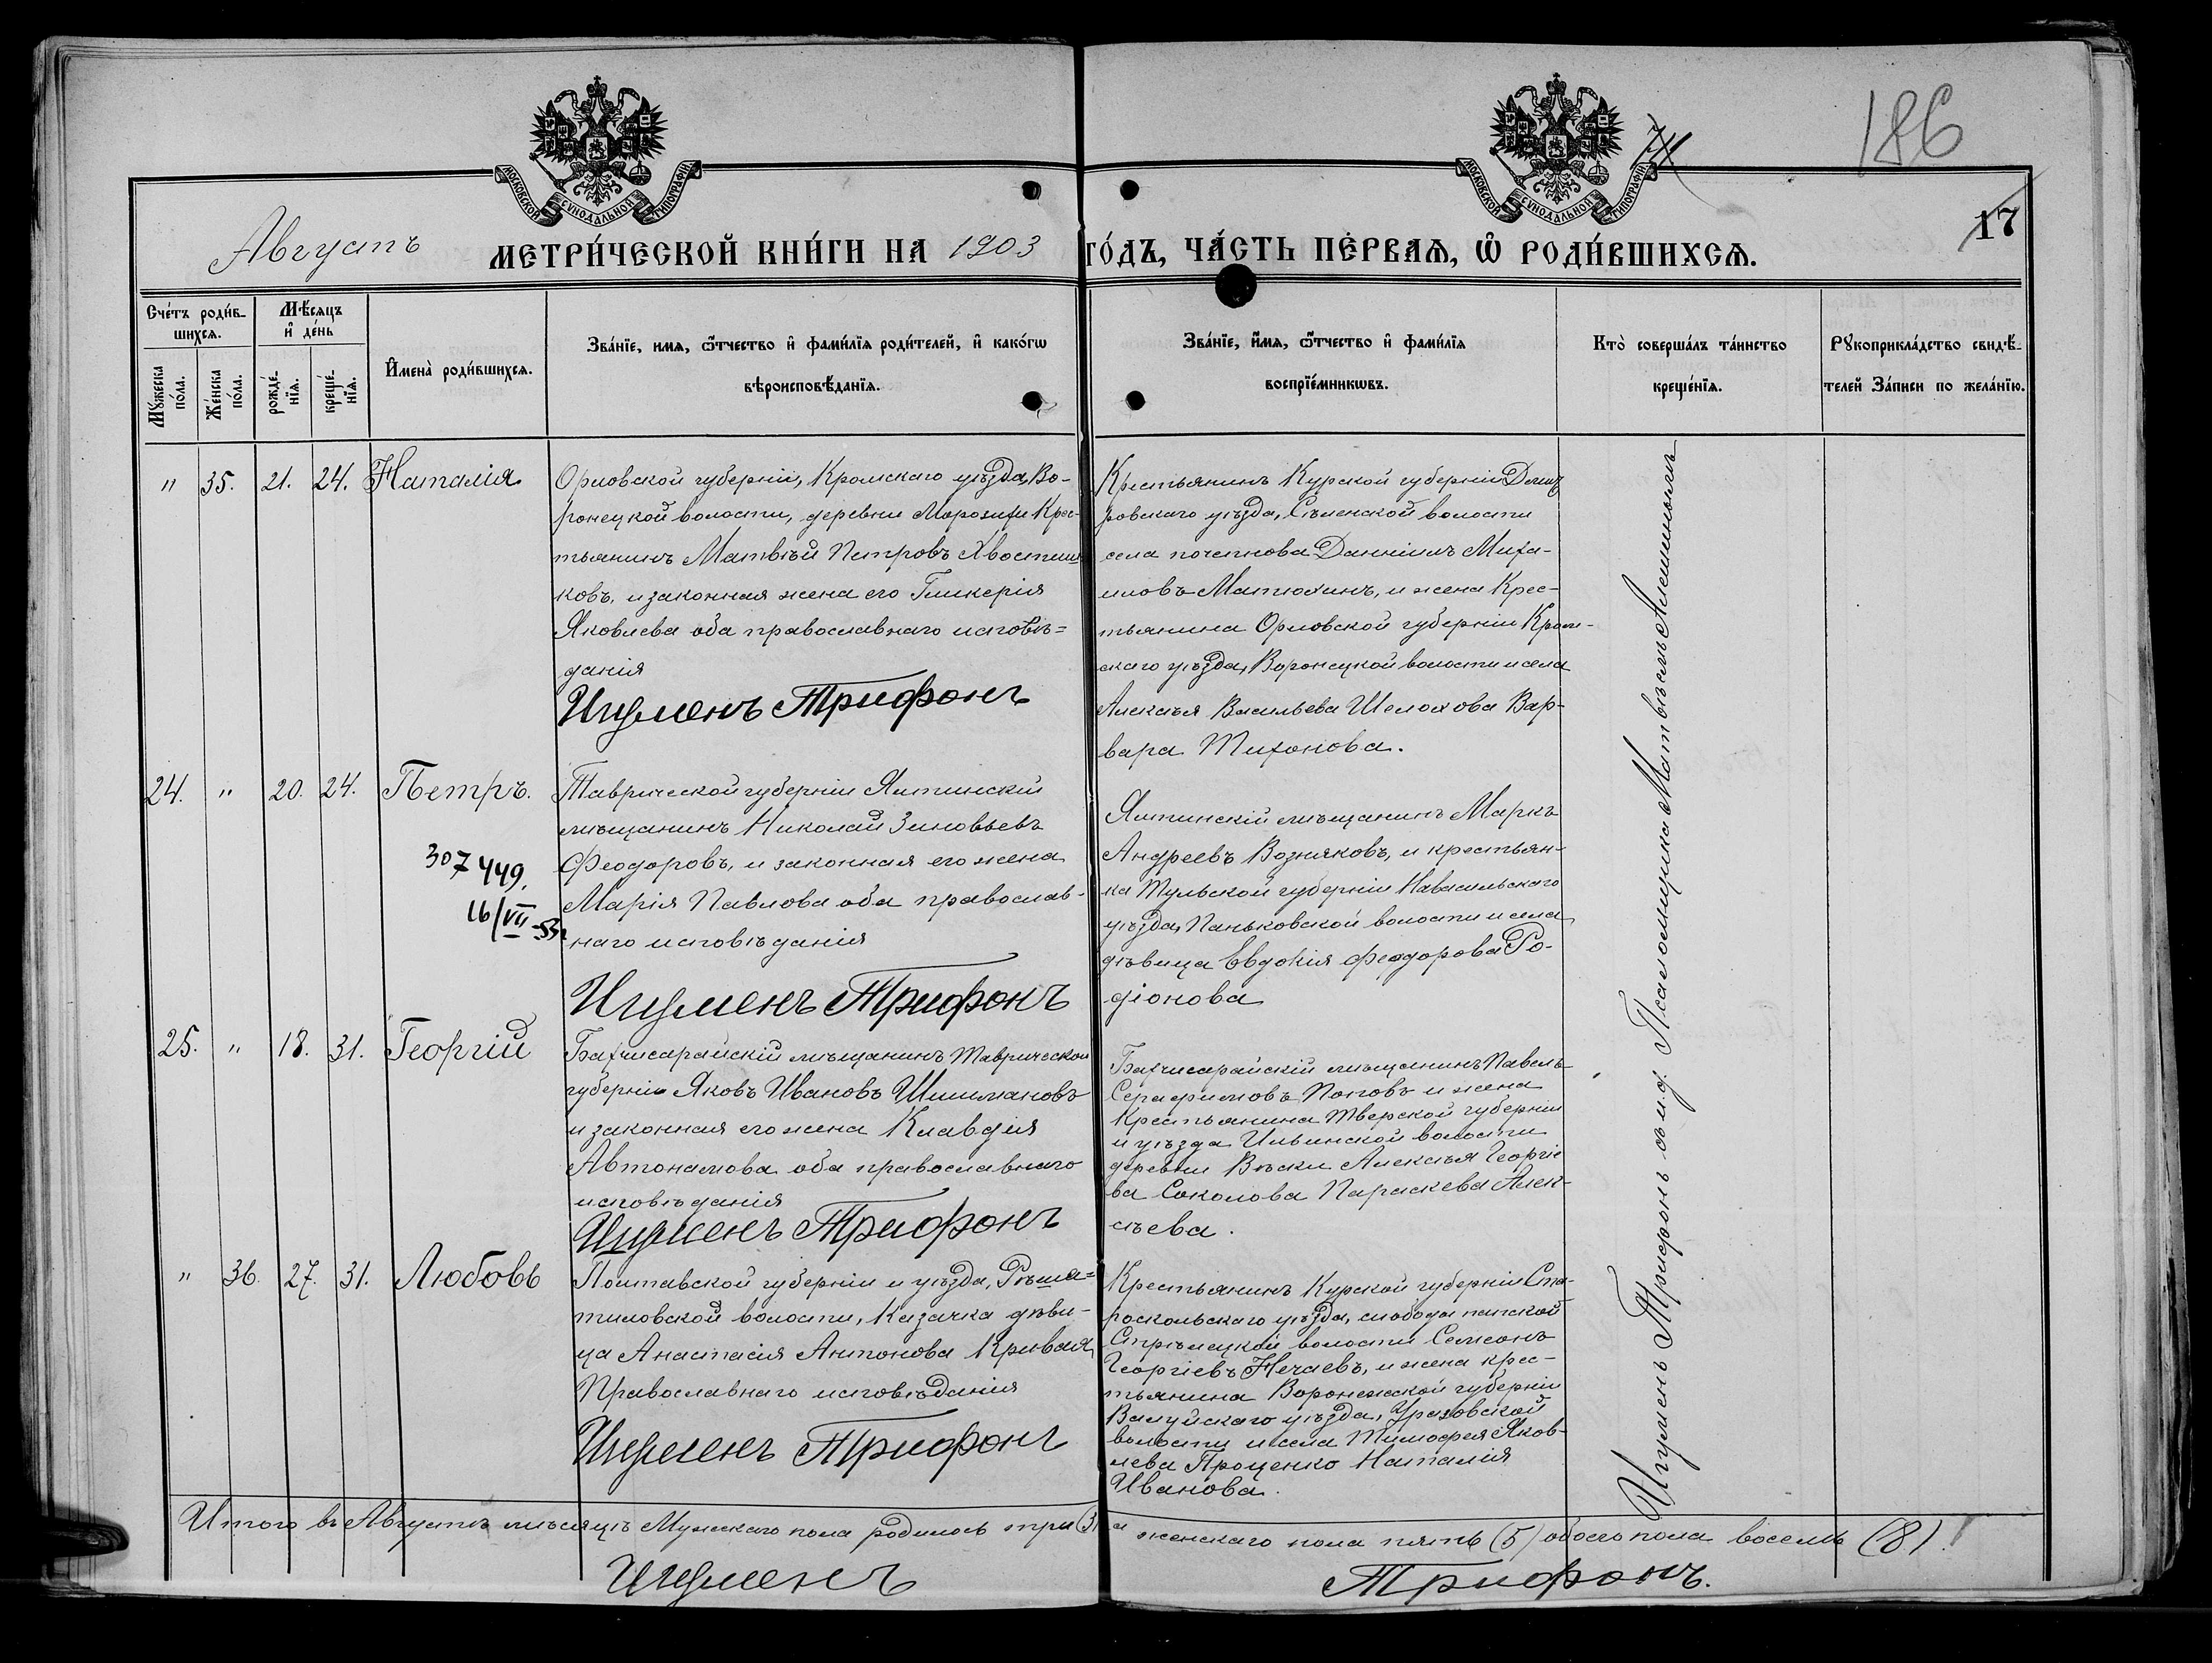 МОСКОВСКОЙ СѴНОДАЛЬНОЙ ТИПОГРАФІИ
МОСКОВСКОЙ СѴНОДАЛЬНОЙ ТИПОГРАФІИ
186
17
Августъ МЕТРИ́ЧЕСКОЙ КНИ́ГИ НА 1903 ГО́ДЪ, ЧА́СТЬ ПЕ́РВАѦ, Ѡ РОДИ́ВШИХСѦ.
Сче́тъ роди́в-
шихсѧ.
Мꙋ́жеска по́ла.
Же́нска по́ла.
Мѣ́сяцъ
и҆ де́нь
рожде́-
нїѧ.
креще́-
нїѧ.
И҆мена̀ роди́вшихсѧ.
Зва́нїе, имѧ, ѻ҆́тчество и҆ фами́лїѧ роди́телей, и҆ како́гѡ
вѣроисповѣ́данїѧ.
Зва́нїе, и҆́мѧ, ѻ҆́тчество и҆ фами́лїѧ
воспрїе́мникѡвъ.
Кто̀ соверша́лъ та́инство
креще́нїѧ.
Рꙋкоприкла́дство свидѣ́-
телей За́писи по жела́нїю.
" 35. 21. 24. Наталія
Орловской губерніи, Кромскаго уѣзда, Во-
ронецкой волости, деревни Морозихи Крес-
тьянинъ Матвѣй Петровъ Хвостин
ковъ, и законная жена его Гликерія
Яковлева оба православнаго исповѣ=
данія
Игуменъ Трифонъ
Крестьянинъ Курской губерніи Дмит
ровскаго уѣзда, волости
села Данніилъ Миха-
иловъ Матюхинъ, и жена Крес-
тьянина Орловской губерніи Кром-
скаго уѣзда, Воронецкой волости и села
Алексѣя Васильева Шелохова Вар-
вара Тихонова.
24. " 20. 24. Петръ.
307449.
16/VII-53г
Таврической губерніи Ялтинскій
мѣщанинъ Николай Зиновьевъ
Феодоровъ, и законная его жена
Марія Павлова оба православ-
наго исповѣданія
Игуменъ Трифонъ
Ялтинскій мѣщанинъ Маркъ
Андреевъ Возняковъ, и крестьян-
ка Тульской губерніи Навасильскаго
уѣзда, Паньковской волости и села
дѣвица Евдокія Феодорова Ро-
діонова
25. " 18. 31. Георгій
Бахчисарайскій мѣщанинъ Таврической
губерніи Яковъ Ивановъ Шишмановъ
и законная его жена Клавдія
Автонамова оба православнаго
исповѣданія
Игуменъ Трифонъ
Бахчисарайскій мѣщанинъ Павелъ
Серафимовъ Поповъ и жена
Крестьянина Тверской губерніи
и уѣзда Ильинской волости
деревни Вѣски Алексѣя Георгіе
ва Соколова Параскева Алек-
сѣева.
" 36. 27. 31. Любовь
Полтавской губерніи и уѣзда, Рѣше=
тиловской волости, Казачка дѣви-
ца Анастасія Антонова Кривая,
Православнаго исповѣданія
Игуменъ Трифонъ
Крестьянинъ Курской губерніи Ста-
роскольскаго уѣзда, слободы
Стрѣлецкой волости Семеонъ
Георгіевъ Нечаевъ, и жена крес-
тьянина Воронежской губерніи
Валуйскаго уѣзда, Уразовской
волости и села Тимофея Яков-
лева Проценко Наталія
Иванова.
Игуменъ Трифонъ съ и. д. Псаломщика Матвѣемъ Алешинымъ
Итого въ Августѣ мѣсяцѣ Мужескаго пола родилось три (3) и женскаго пола пять (5) обоего пола восемь (8).
Игуменъ Трифонъ.